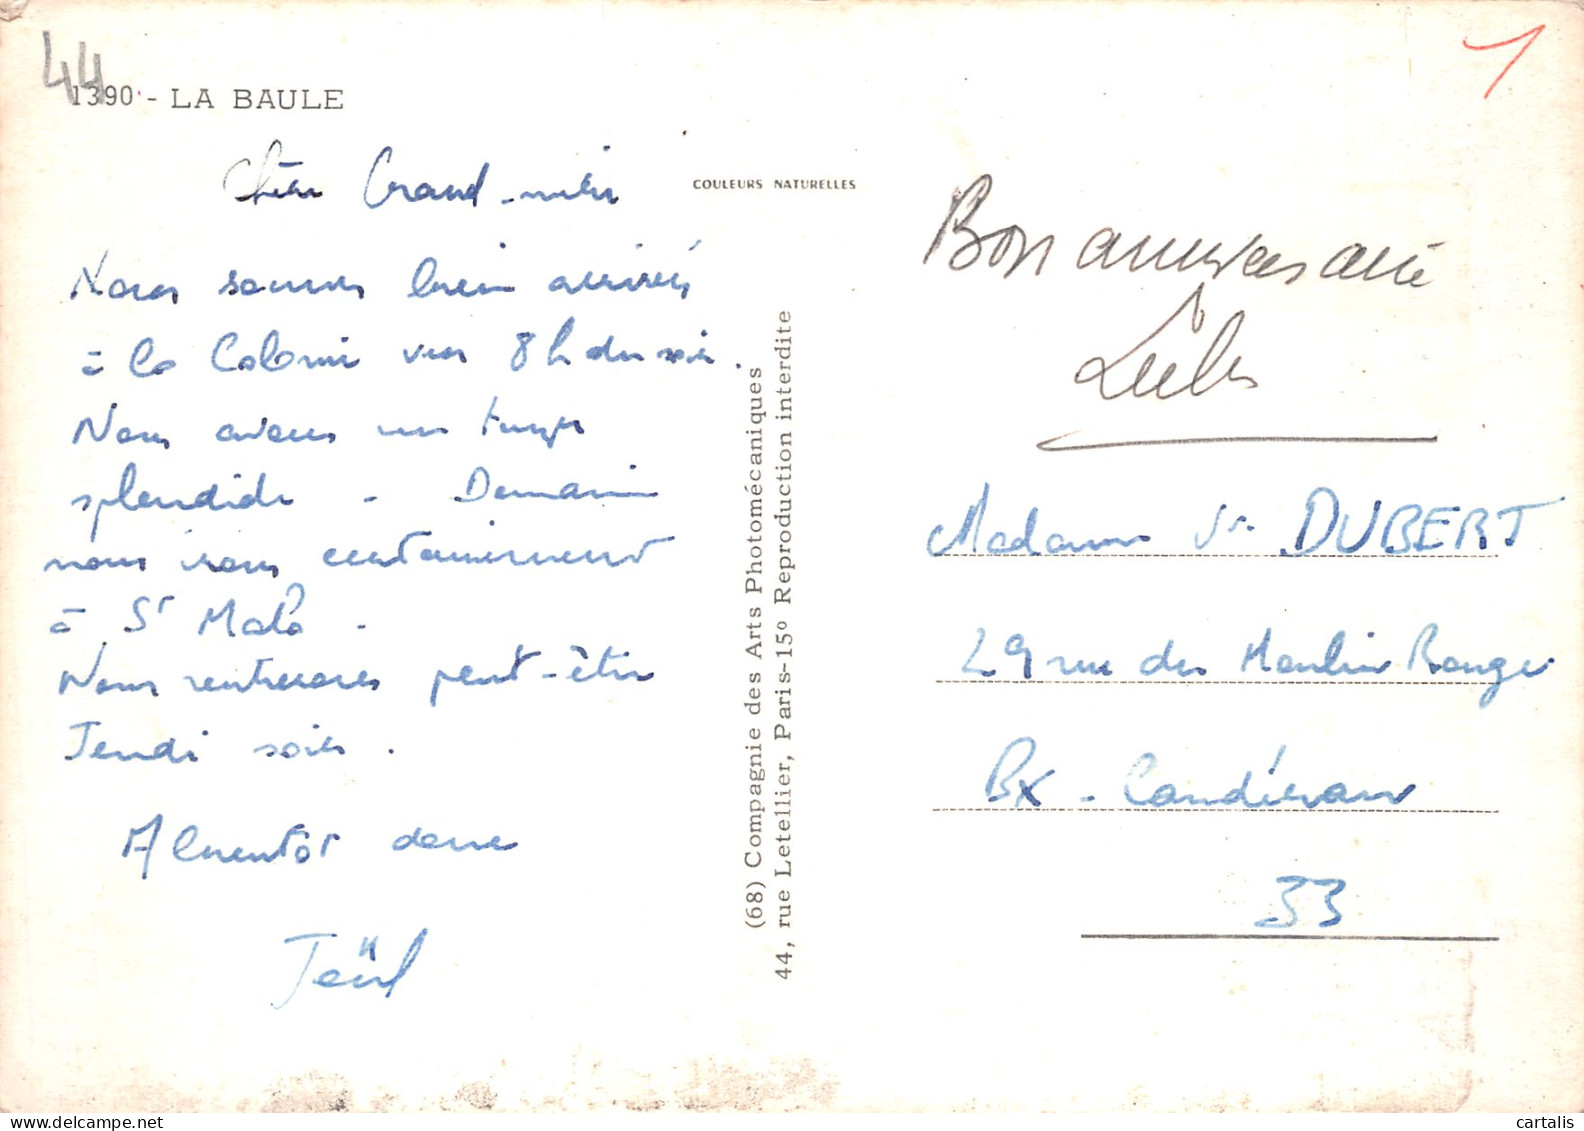 44
1390 - LA BAULE
Chère Grand-mère
Nous sommes bien arrivés
à la Colonie vers 8h du soir.
Nous avons un temps
splendide - Demain
nous irons certainement
à St Malo -
Nous rentrerons peut-être
Jeudi soir.
A bientôt donc
COULEURS NATURELLES
(68) Compagnie des Arts Photomécaniques
44, rue Letellier, Paris-15º Reproduction interdite
1
Bon anniversaire
Madame Ve DUBERT
29 rue des Moulin Rouge
BX - Caudéran
33
cartalis